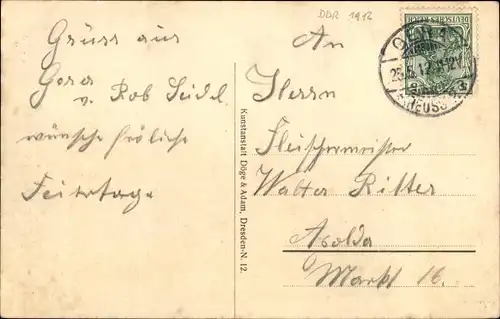 DDR 1912
DEUTSCHES REICH
GERA
25.5.12. 11-12V
(REUSS)
Gruss aus
Gera
v. Rob Seidel
wünsche fröliche
Feiertage
An
Herrn
Fleischermeister
Walter Ritter
Apolda
Markt 16.
Kunstanstalt Döge & Adam, Dresden-N. 12.